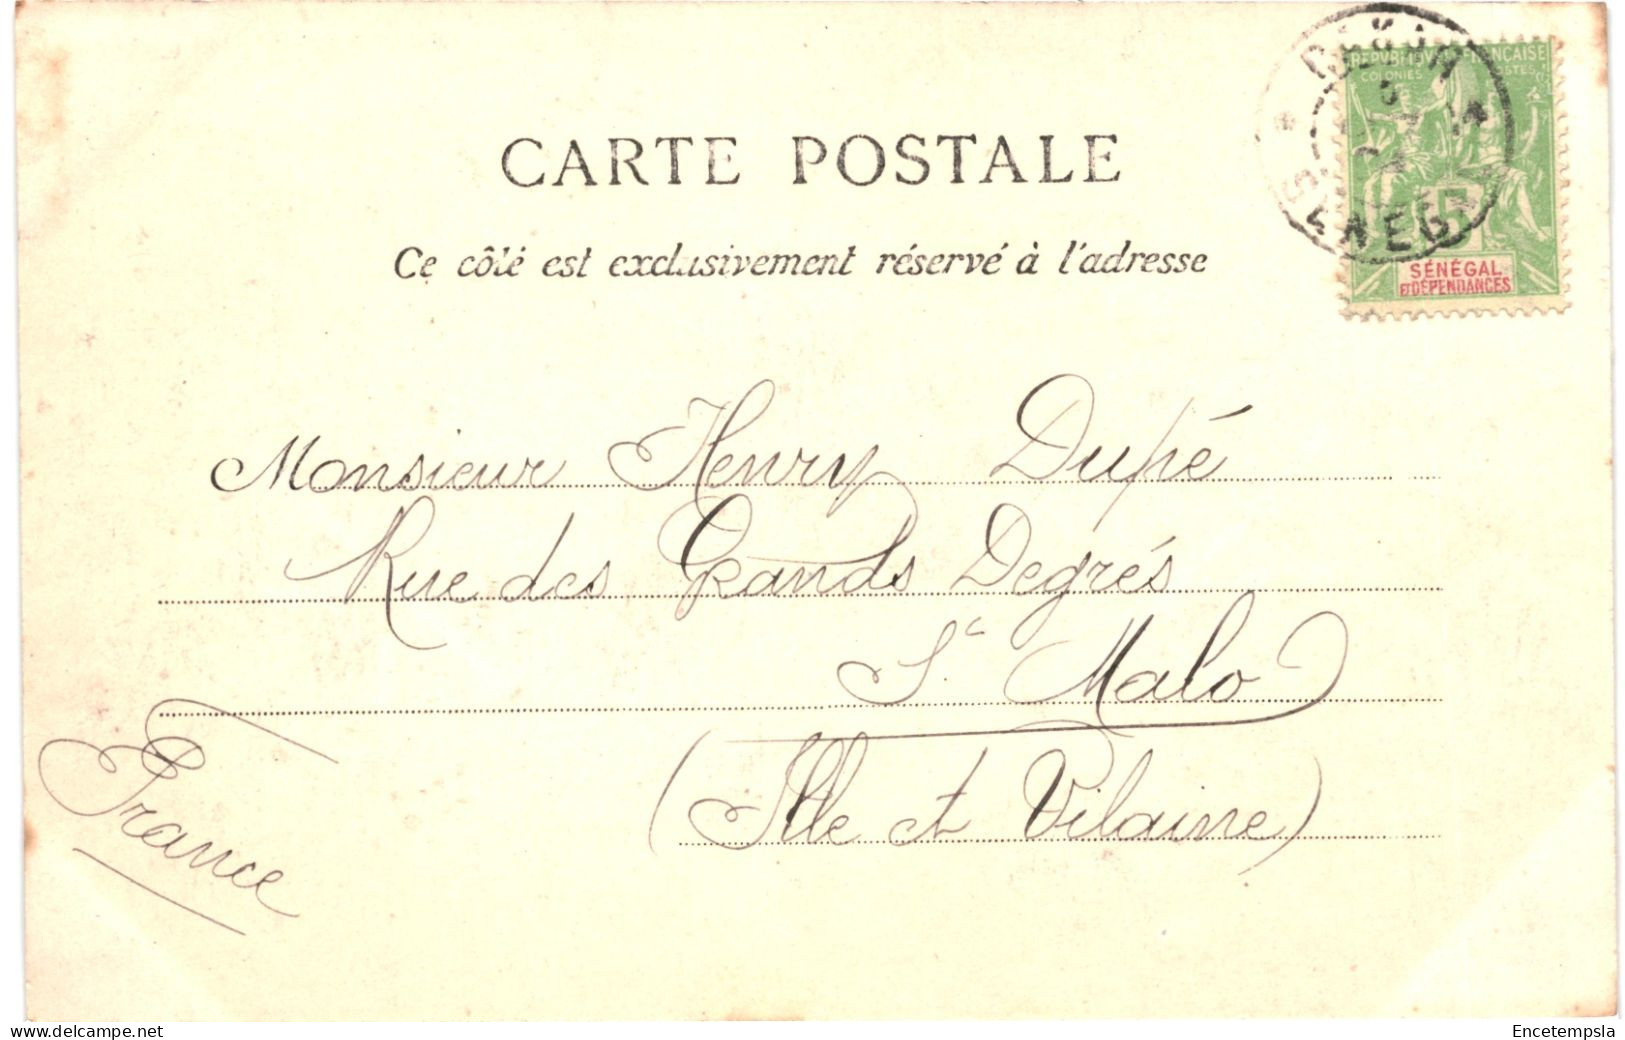 CARTE POSTALE
Ce côté est exclusivement réservé à l'adresse
DAKAR
SÉNÉGAL
RÉPUBLIQUE FRANÇAISE
COLONIES POSTES
5
SÉNÉGAL
ET DÉPENDANCES
Monsieur Henry Dupé
Rue des Grands Degrés
St Malo
(Ille et Vilaine)
France
www.delcampe.net
Encetempsla